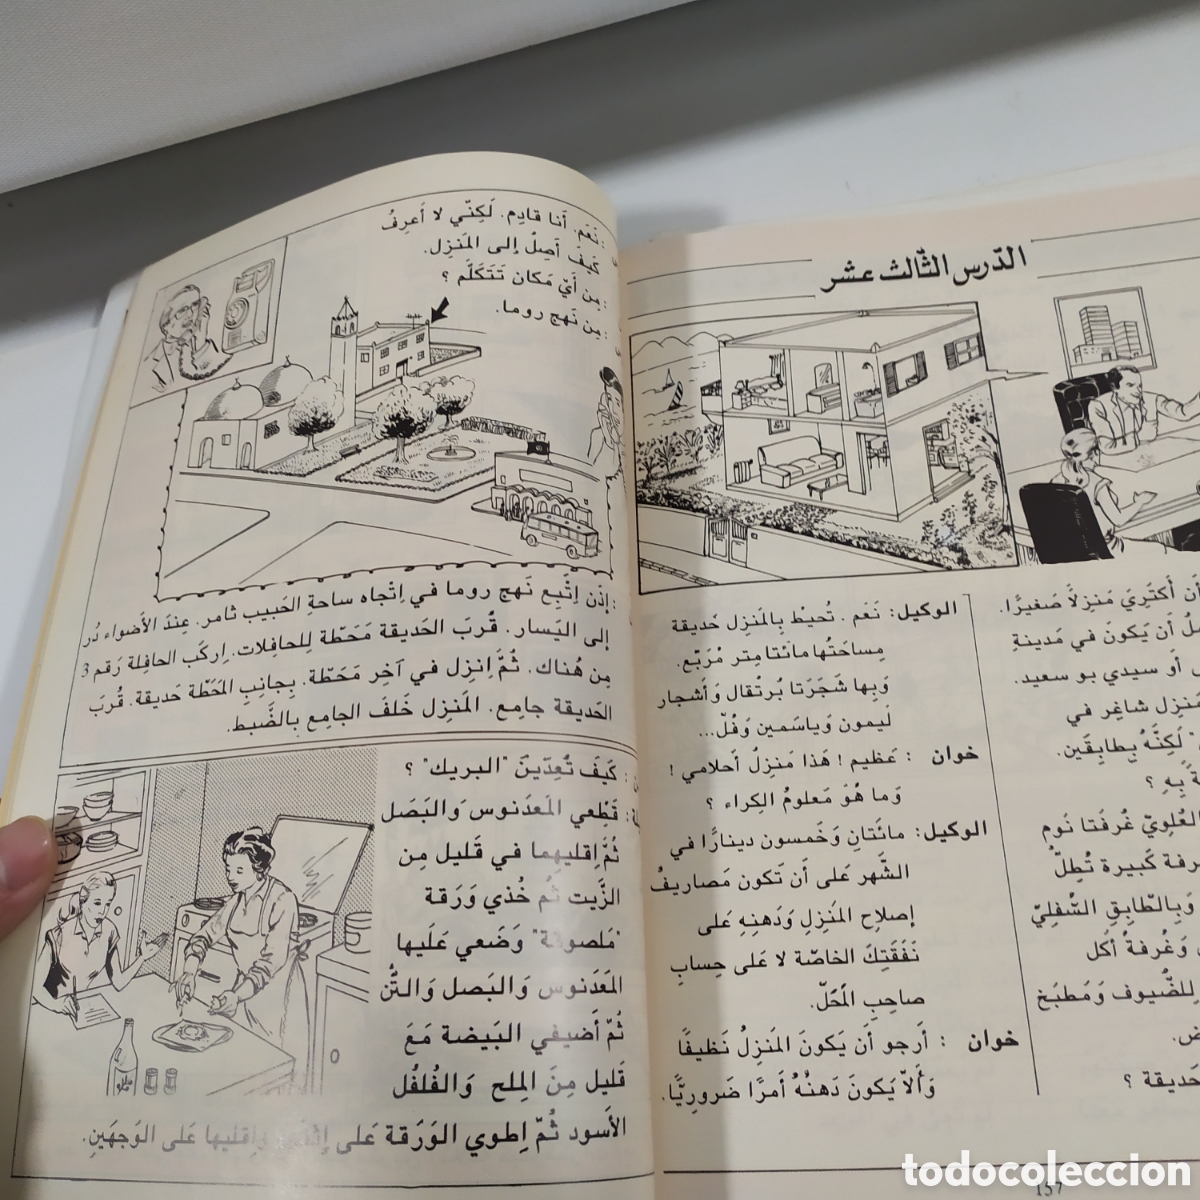 : نَعَم. أَنا قادِم. لَكِنّي لا أَعرِفُ
كَيفَ أَصِلُ إِلى المَنزِل.
: مِن أَيِّ مَكان تَتَكَلَّم ؟
: مِن نَهج روما.
: إِذَن إِتَّبِع نَهج روما في اِتْجاه ساحةِ الحَبيب ثامر. عِندَ الأَضواء دُر
إلى اليَسار. قُربَ الحَديقة مَحَطّة لِلحافِلات. اِركَب الحافِلة رَقم 3
مِن هُناك. ثُمَّ اِنزِل في آخِر مَحَطّة. بِجانِبِ المَحَطّة حَديقة. قُربَ
الحَديقة جامِع. المَنزِل خَلفَ الجامِع بِالضَّبط.
: كَيفَ تُعِدّينَ "البريك" ؟
: قَطِّعي المَعدَنوس وَالبَصَل
ثُمَّ اِقليهِما في قَليل مِن
الزَّيت ثُم خُذي وَرَقة
"مَلصوقة" وَضَعي عَلَيها
المَعدَنوس وَالبَصل وَالتُّن
ثُمّ أَضيفي البَيضة مَعَ
قَليل مِنَ المِلح وَالفُلفُل
الأَسود ثُمّ اِطوي الوَرَقة عَلى وَاقليها عَلى الوَجهَينِ.
الدّرس الثّالث عشر
أَن أَكتَرِيَ مَنزِلاً صَغيرًا.
أَن يَكونَ في مَدينةِ
أَو سيدي بو سعيد.
مَنزِل شاغِر في
لَكِنَّهُ بِطابِقَين.
بِهِ ؟
العُلوِيّ غُرفَتا نَوم
كَبيرة تُطِلُّ
وَبِالطّابِقِ السُّفلِيّ
وَغُرفةُ أَكل
لِلضُّيوف وَمَطبَخ
حَديقة ؟
الوكيل: نَعَم . تُحيطُ بِالمَنزِل حَديقة
مِساحَتُها مائتا مِتر مُرَبّع.
وَبِها شَجَرَتا بُرتقال وَأَشجار
لَيمون وَياسَمين وَفُلّ...
خوان : عَظيم ! هَذا مَنزِلُ أَحلامي !
وَما هُوَ مَعلومُ الكِراء ؟
الوكيل: مائَتانِ وَخَمسون دينارًا في
الشَّهر عَلى أَن تَكونَ مَصاريفُ
إِصلاحِ المَنزِلِ وَدَهنِهِ عَلى
نَفَقَتِكَ الخاصّة لا عَلى حِسابِ
صاحِبِ المَحَلّ.
خوان : أَرجو أَن يَكونَ المَنزِلُ نَظيفًا
وَأَلاّ يَكونَ دَهنُهُ أَمرًا ضَرورِيًّا.
157
todocoleccion